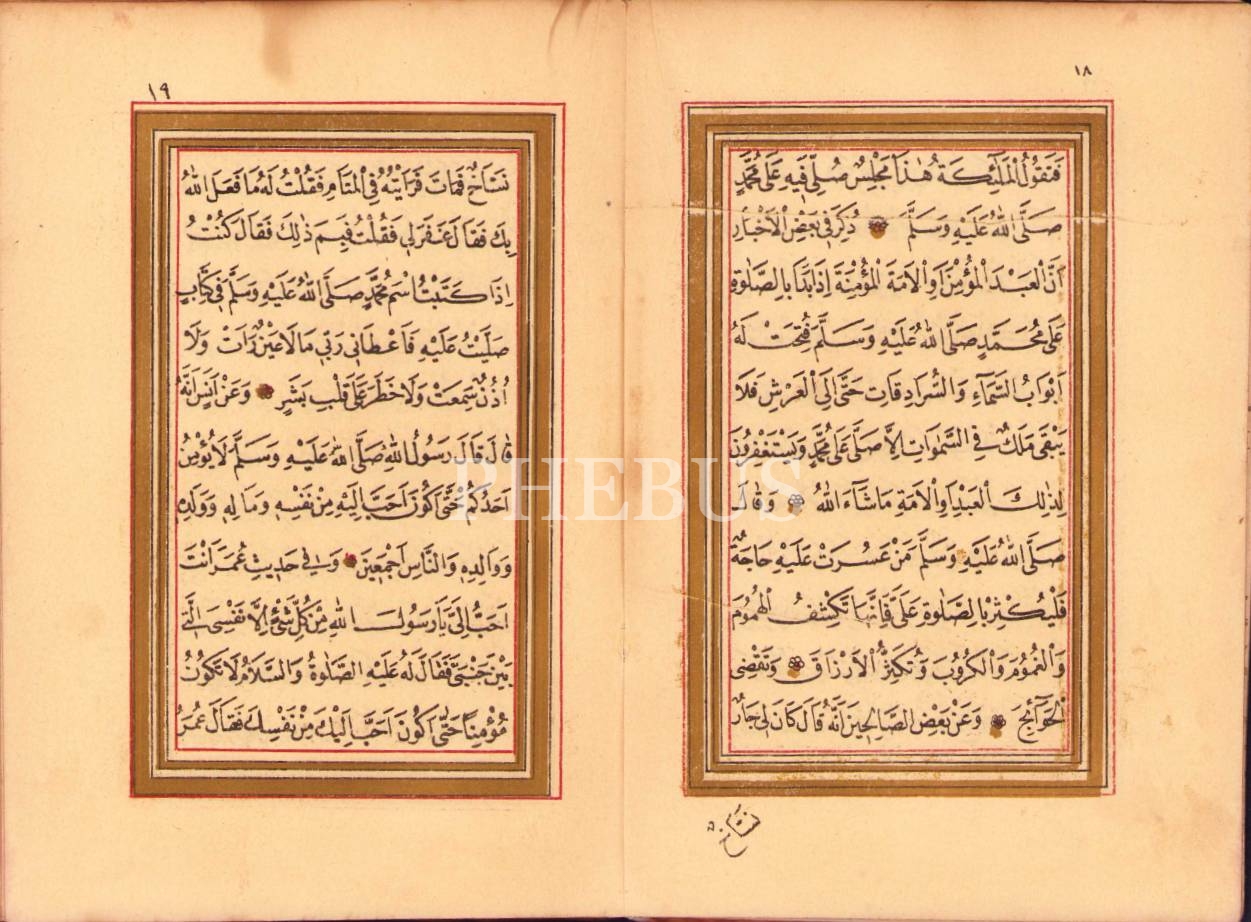 ١٨
فَتَقُولُ الْمَلٰئِكَةُ هٰذَا مَجْلِسٌ صُلِّيَ فِيهِ عَلٰى مُحَمَّدٍ
صَلَّى اللّٰهُ عَلَيْهِ وَسَلَّمَ ذُكِرَ فِي بَعْضِ الْاَخْبَارِ
اَنَّ الْعَبْدَ الْمُؤْمِنَ اَوِ الْاَمَةَ الْمُؤْمِنَةَ اِذَا بَدَا بِالصَّلٰوةِ
عَلٰى مُحَمَّدٍ صَلَّى اللّٰهُ عَلَيْهِ وَسَلَّمَ فُتِحَتْ لَهُ
اَبْوَابُ السَّمَاءِ وَالسُّرَادِقَاتِ حَتَّى اِلَى الْعَرْشِ فَلَا
يَبْقٰى مَلَكٌ فِي السَّمٰوَاتِ اِلَّا صَلَّى عَلٰى مُحَمَّدٍ وَيَسْتَغْفِرُونَ
لِذٰلِكَ الْعَبْدِ اَوِ الْاَمَةِ مَاشَاءَ اللّٰهُ وَقَالَ
صَلَّى اللّٰهُ عَلَيْهِ وَسَلَّمَ مَنْ عَسُرَتْ عَلَيْهِ حَاجَةٌ
فَلْيُكْثِرْ بِالصَّلٰوةِ عَلَيَّ فَاِنَّهَا تَكْشِفُ الْهُمُومَ
وَالْغُمُومَ وَالْكُرُوبَ وَتُكَثِّرُ الْاَرْزَاقَ وَتَقْضِي
الْحَوَائِجَ وَعَنْ بَعْضِ الصَّالِحِينَ اَنَّهُ قَالَ كَانَ لِي جَارٌ
نَسَّاخٌ
١٩
نَسَّاخٌ فَمَاتَ فَرَاَيْتُهُ فِي الْمَنَامِ فَقُلْتُ لَهُ مَا فَعَلَ اللّٰهُ
بِكَ فَقَالَ غَفَرَ لِي فَقُلْتُ فَبِمَ ذٰلِكَ فَقَالَ كُنْتُ
اِذَا كَتَبْتُ اسْمَ مُحَمَّدٍ صَلَّى اللّٰهُ عَلَيْهِ وَسَلَّمَ فِي كِتَابٍ
صَلَّيْتُ عَلَيْهِ فَاَعْطَانِي رَبِّي مَا لَا عَيْنٌ رَاَتْ وَلَا
اُذُنٌ سَمِعَتْ وَلَا خَطَرَ عَلٰى قَلْبِ بَشَرٍ وَعَنْ اَنَسٍ اَنَّهُ
قَالَ قَالَ رَسُولُ اللّٰهِ صَلَّى اللّٰهُ عَلَيْهِ وَسَلَّمَ لَا يُؤْمِنُ
اَحَدُكُمْ حَتّٰى اَكُونَ اَحَبَّ اِلَيْهِ مِنْ نَفْسِهِ وَمَالِهِ وَوَلَدِهِ
وَوَالِدِهِ وَالنَّاسِ اَجْمَعِينَ وَفِي حَدِيثِ عُمَرَ اَنْتَ
اَحَبُّ اِلَيَّ يَا رَسُولَ اللّٰهِ مِنْ كُلِّ شَيْءٍ اِلَّا نَفْسِيَ الَّتِي
بَيْنَ جَنْبَيَّ فَقَالَ لَهُ عَلَيْهِ الصَّلٰوةُ وَالسَّلَامُ لَا تَكُونُ
مُؤْمِنًا حَتّٰى اَكُونَ اَحَبَّ اِلَيْكَ مِنْ نَفْسِكَ فَقَالَ عُمَرُ
PHEBUS